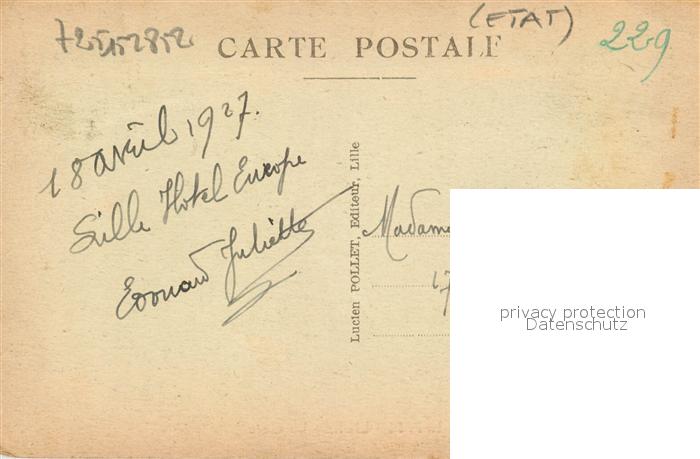 72552852
(ETAT)
229
CARTE POSTALE
18 avril 1927.
Lille Hotel Europe
Edouard Juliette
Lucien POLLET, Editeur, Lille
Madame
17
privacy protection
Datenschutz